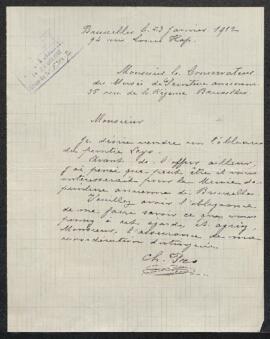 Bruxelles le 23 janvier 1912
94 rue Louis Hap.
Monsieur le Conservateur
du Musée de Peinture ancienne
35 rue de la Régence Bruxelles
Monsieur
Je désire vendre un tableau
du peintre
Avant de l'offrir ailleurs,
j'ai pensé que peut être il vous
intéresserait pour le Musée de
peinture ancienne de Bruxelles.
Veuillez avoir l'obligeance
de me faire savoir ce que vous
à cet égard et agréez,
Monsieur, l'assurance de ma
considération distinguée.
Ch.